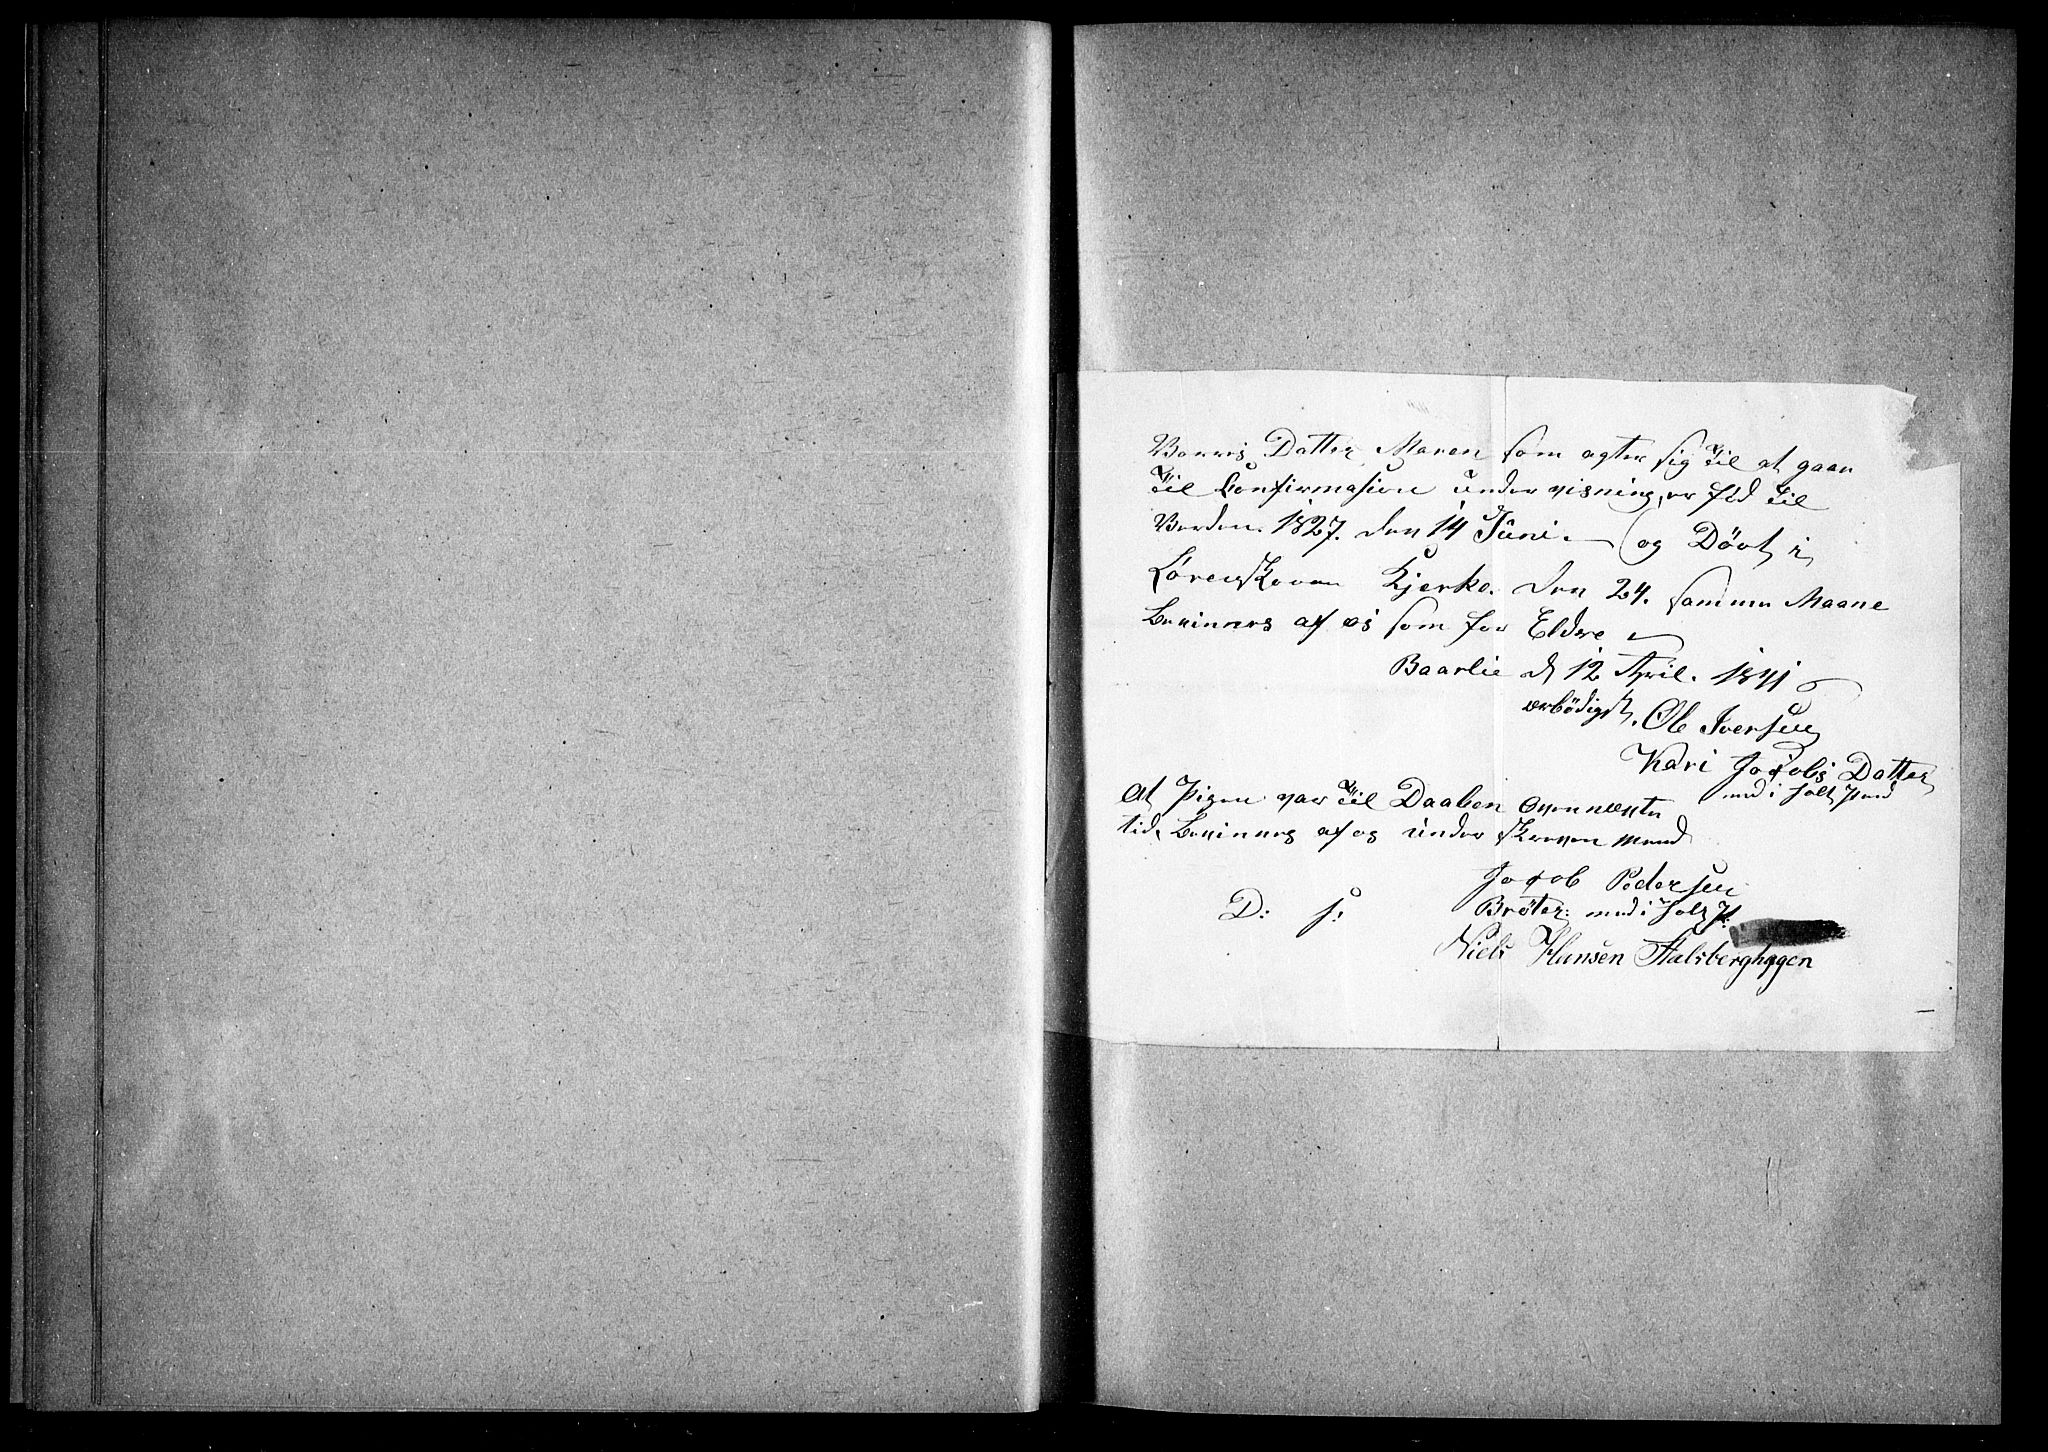 Vorres Datter Maren som agter sig til at gaae
til Confirmasions undervisning, er fød til
Verden. 1827. den 14 Juni. og Døvt i
Lørenskoven Kjerke. den 24. samme Maane
Bevinnes af os som for Eldre
Baarlie d 12 April. 1841
ærbödigst. Ole Iversen
Kari Jacobs Datter
med i holt Pend
At Pigen var til Daaben ovennevnte
tid, Bevinnes af os under skreven mend
Jacob Pedersen
D: S: Brøter: med i holt P:
Niels Hansen Stalsberghagen